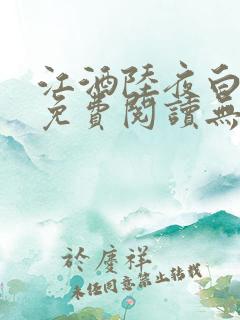 江酒陸夜白
免費閱讀無
於慶祥
未經同意禁止轉載